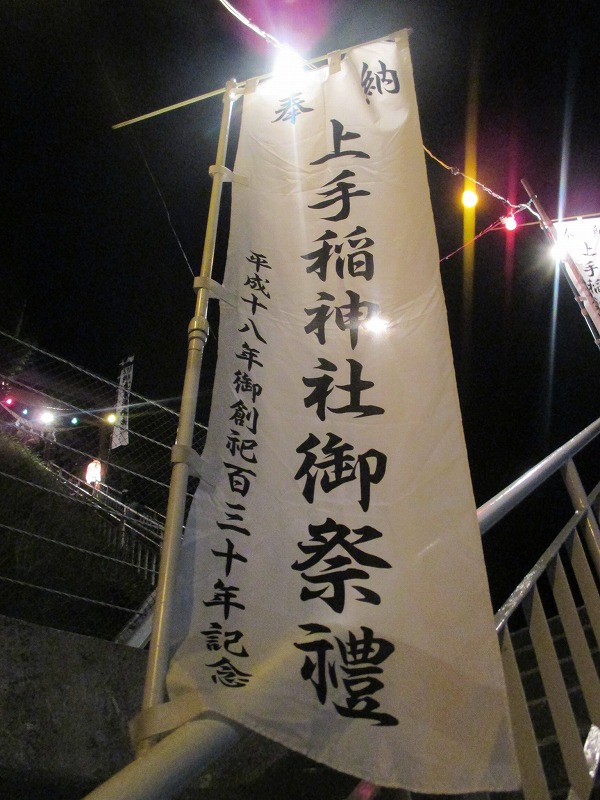 奉納
上手稲神社御祭禮
平成十八年御創祀百三十年記念
上手稲